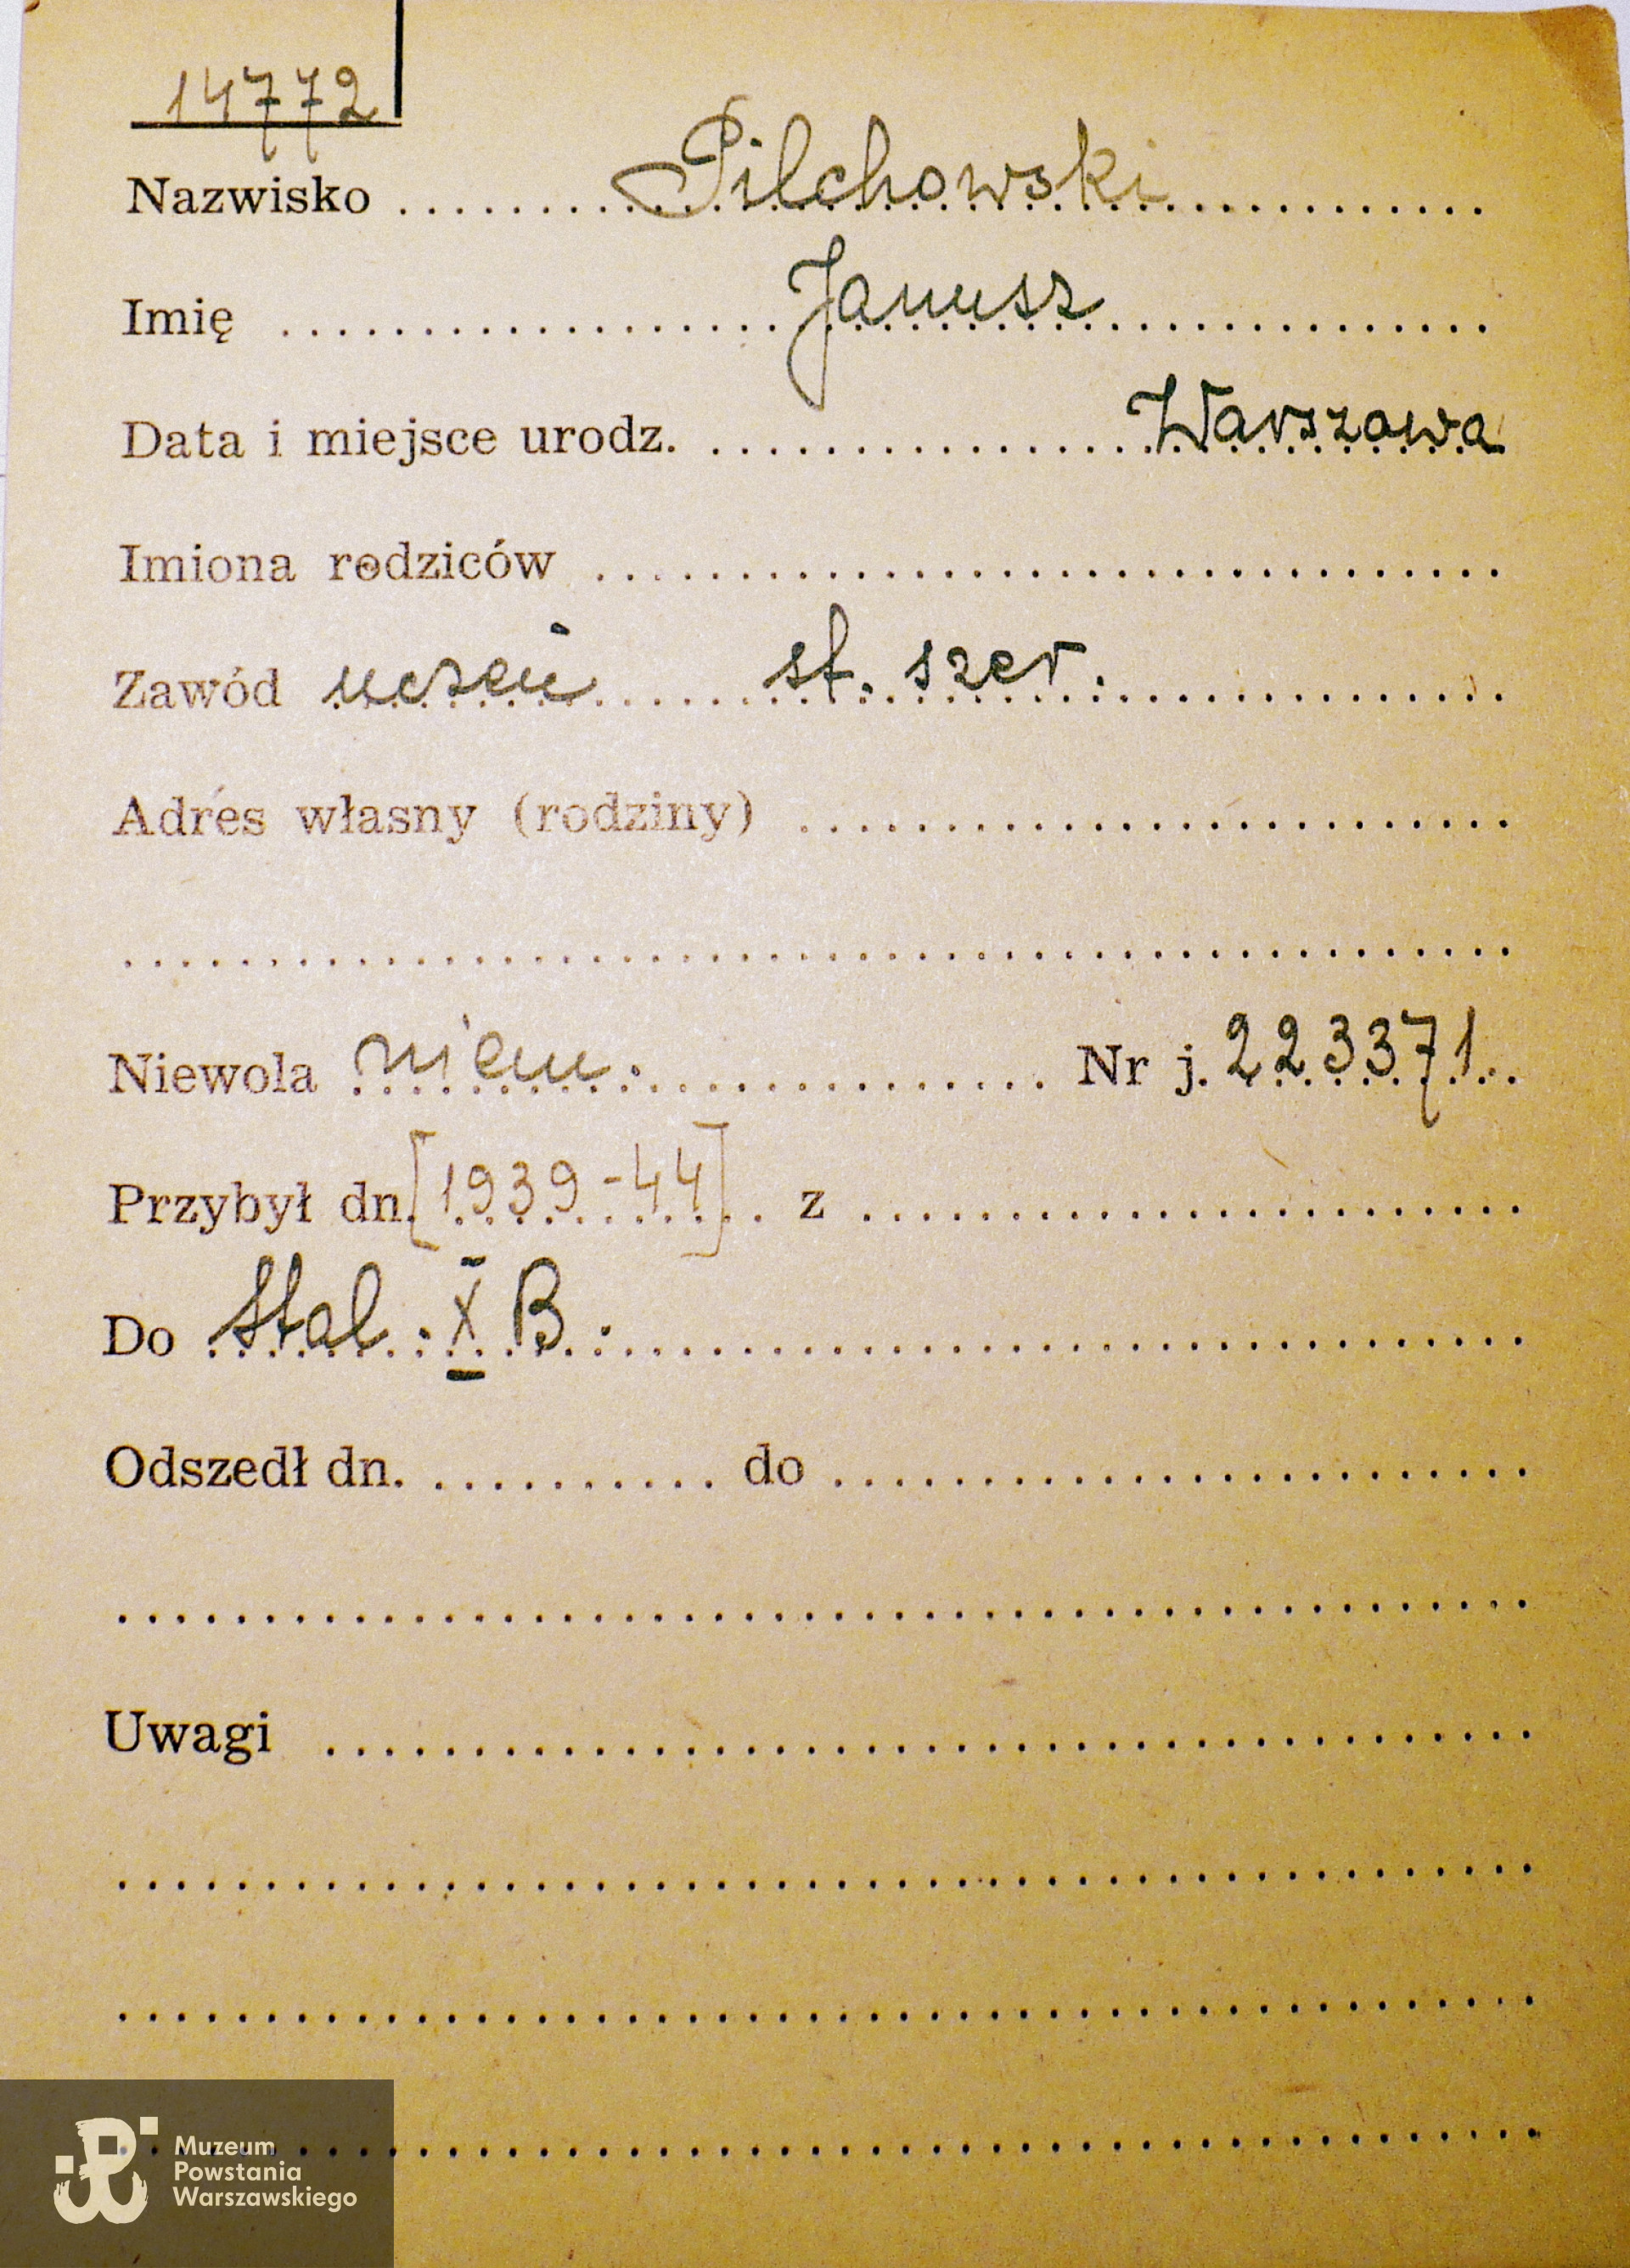 14772
Nazwisko Pilchowski
Imię Janusz
Data i miejsce urodz. Warszawa
Imiona rodziców
Zawód uczeń st. szer.
Adres własny (rodziny)
Niewola niem. Nr j. 223371
Przybył dn. [1939-44] z
Do Stal. X B.
Odszedł dn. do
Uwagi
Muzeum
Powstania
Warszawskiego